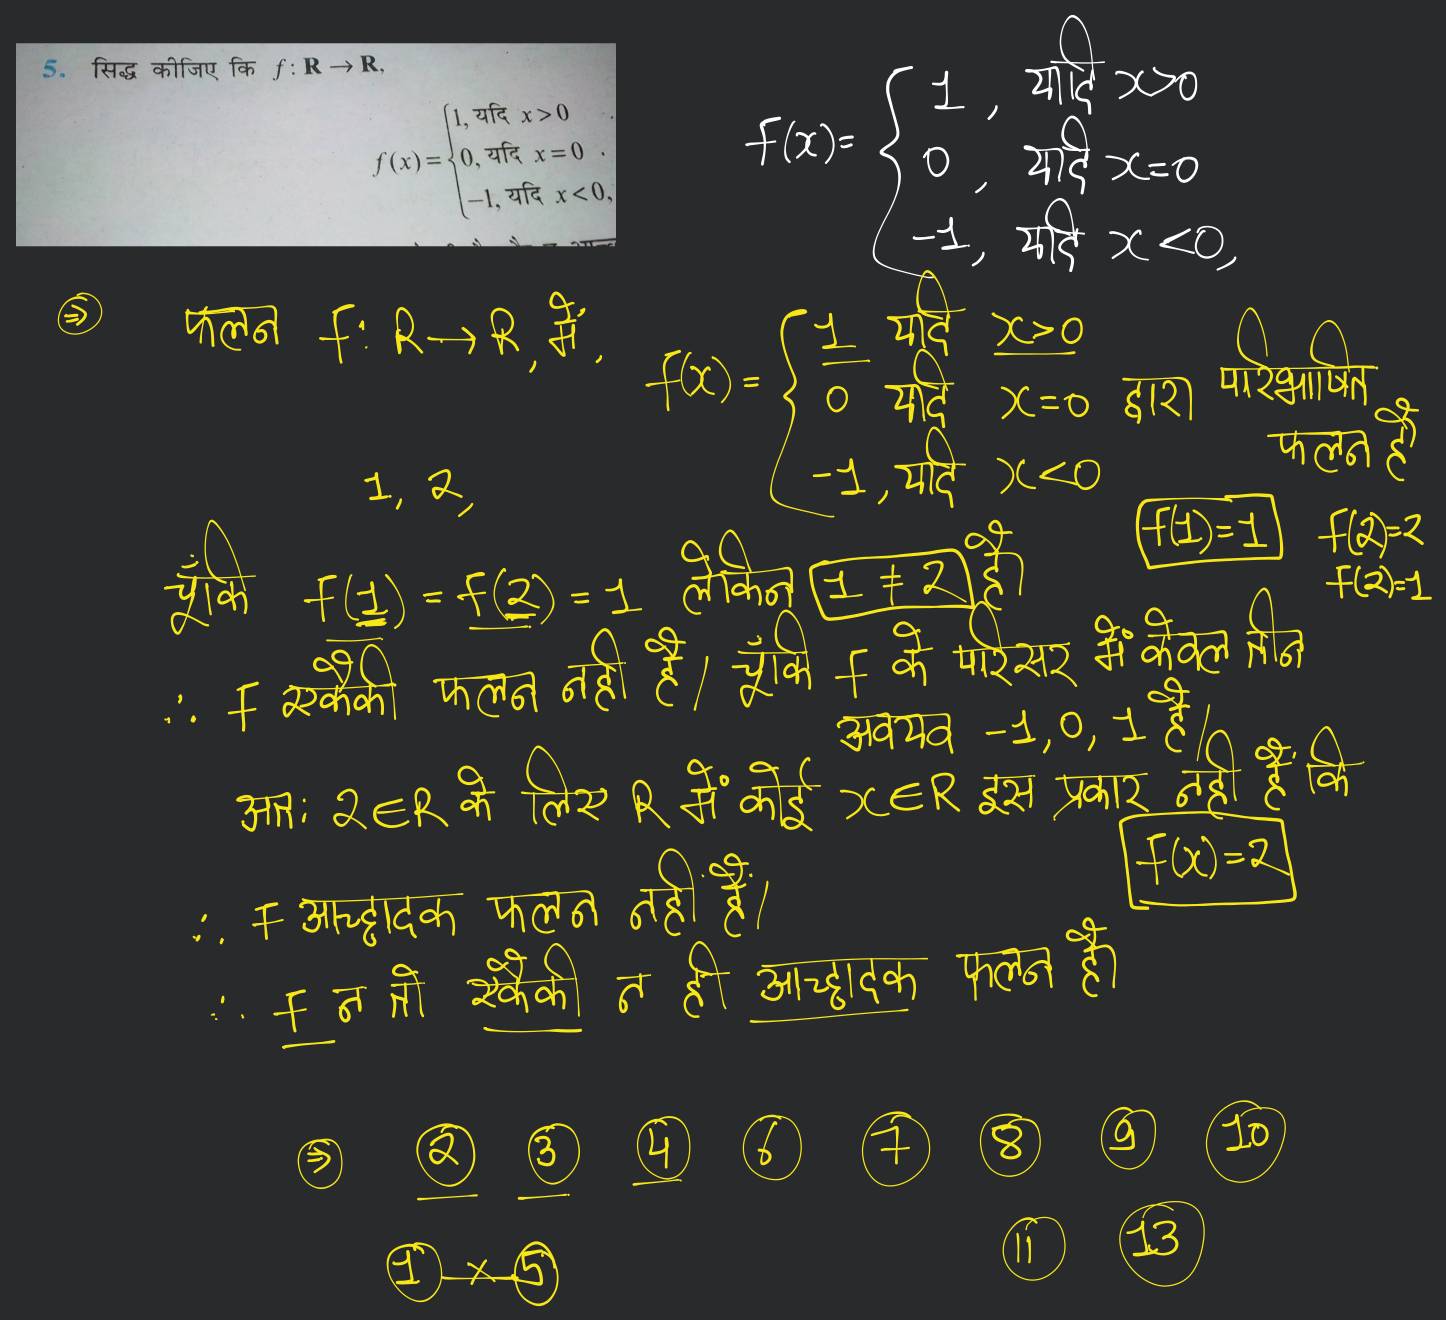 5. सिद्ध कीजिए कि f : R → R,
f(x) = { 1, यदि x > 0
0, यदि x = 0 .
−1, यदि x < 0,
f(x) = { 1 , यदि x>0
0 , यदि x=0
-1, यदि x<0,
⇒ फलन f: R→R, में,
f(x) = { 1 यदि x>0
0 यदि x=0 द्वारा परिभाषित
-1, यदि x<0
फलन है
1, 2,
f(1)=1 f(2)=2
f(2)=1
चूँकि f(1) = f(2) = 1 लेकिन 1 ≠ 2 है।
∴ f एकैकी फलन नही है। चूँकि f के परिसर में केवल तीन
अवयव -1, 0, 1 है।
अतः 2∈R के लिए R में कोई x∈R इस प्रकार नही है कि
f(x)=2
∴ f आच्छादक फलन नहीं है।
∴ f न तो एकैकी न ही आच्छादक फलन है।
⇒ 2 3 4 6 7 8 9 10
11 13
1 × 5